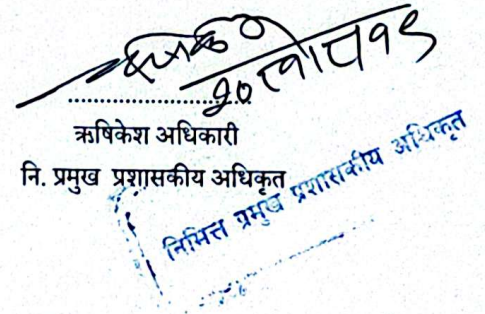 ऋषिकेश अधिकारी
नि. प्रमुख प्रशासकीय अधिकृत
निमित्त प्रमुख प्रशासकीय अधिकृत